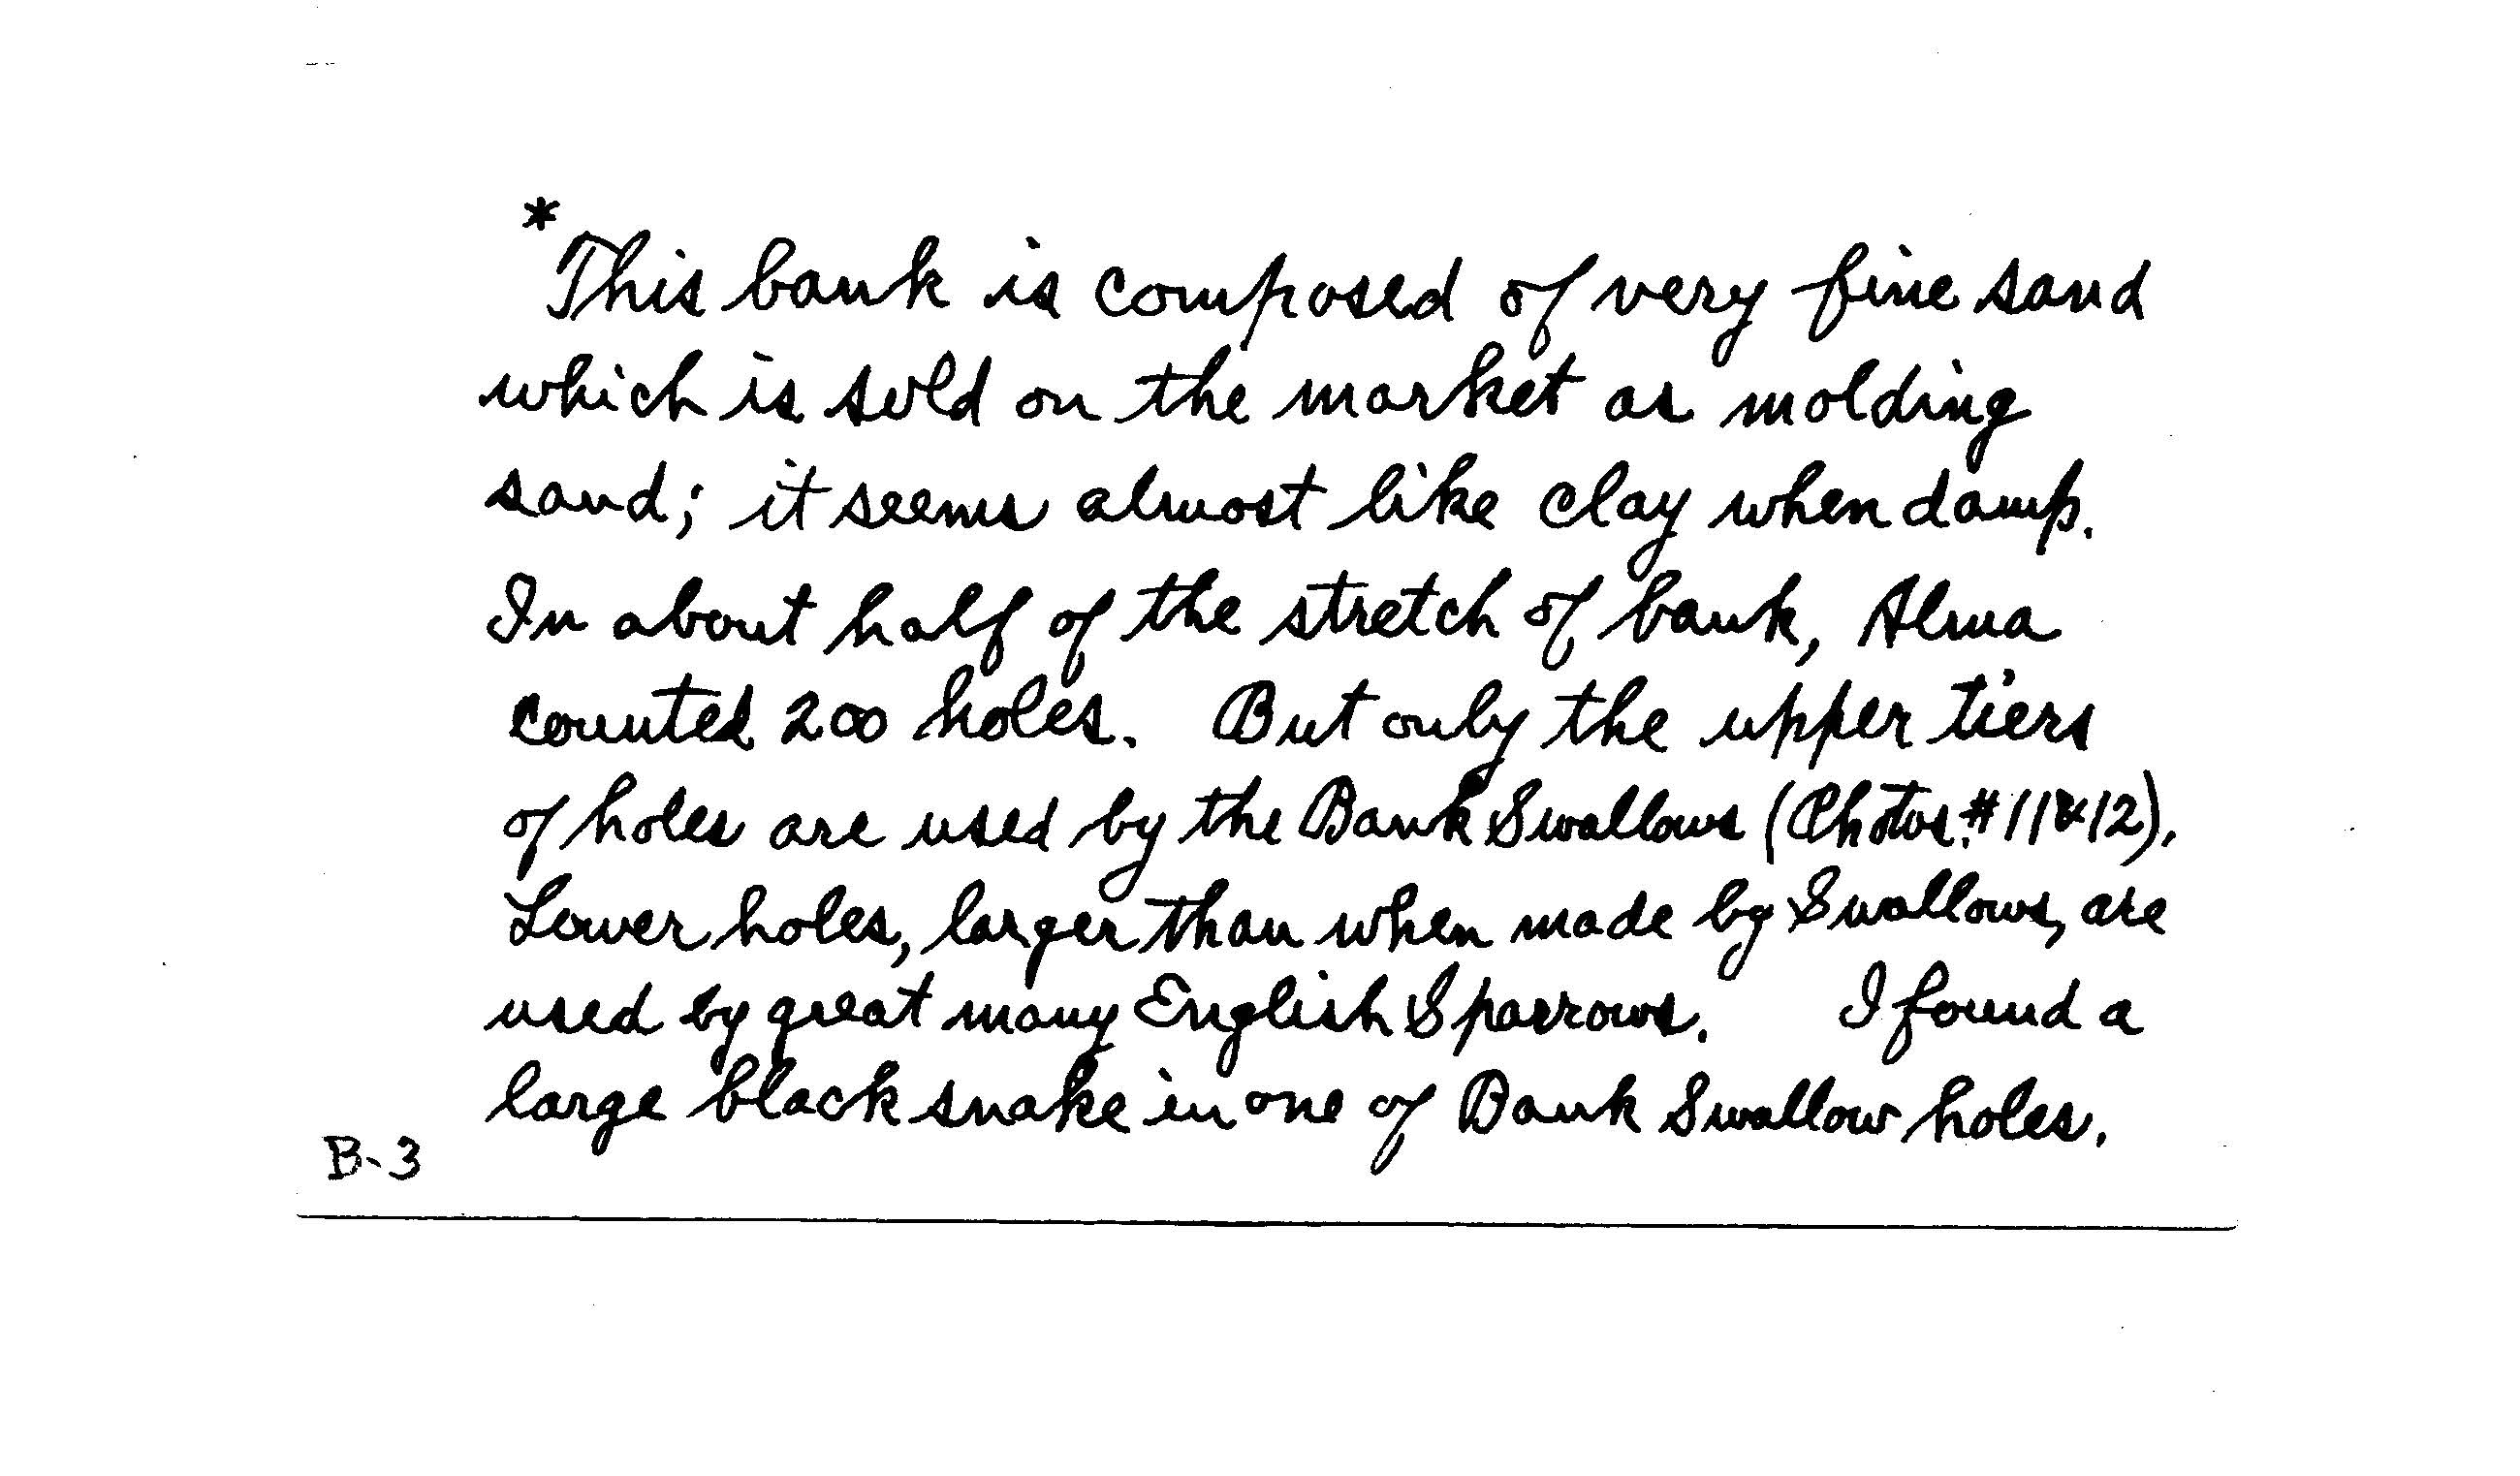 *This bank is composed of very fine sand
which is sold on the market as molding
sand; it seems almost like clay when damp.
In about half of the stretch of bank, Alma
counted 200 holes. But only the upper tiers
of holes are used by the Bank Swallows (Photos. #11&12).
Lower holes, larger than when made by Swallows, are
used by great many English Sparrows. I found a
large black snake in one of Bank Swallow holes.
B-3